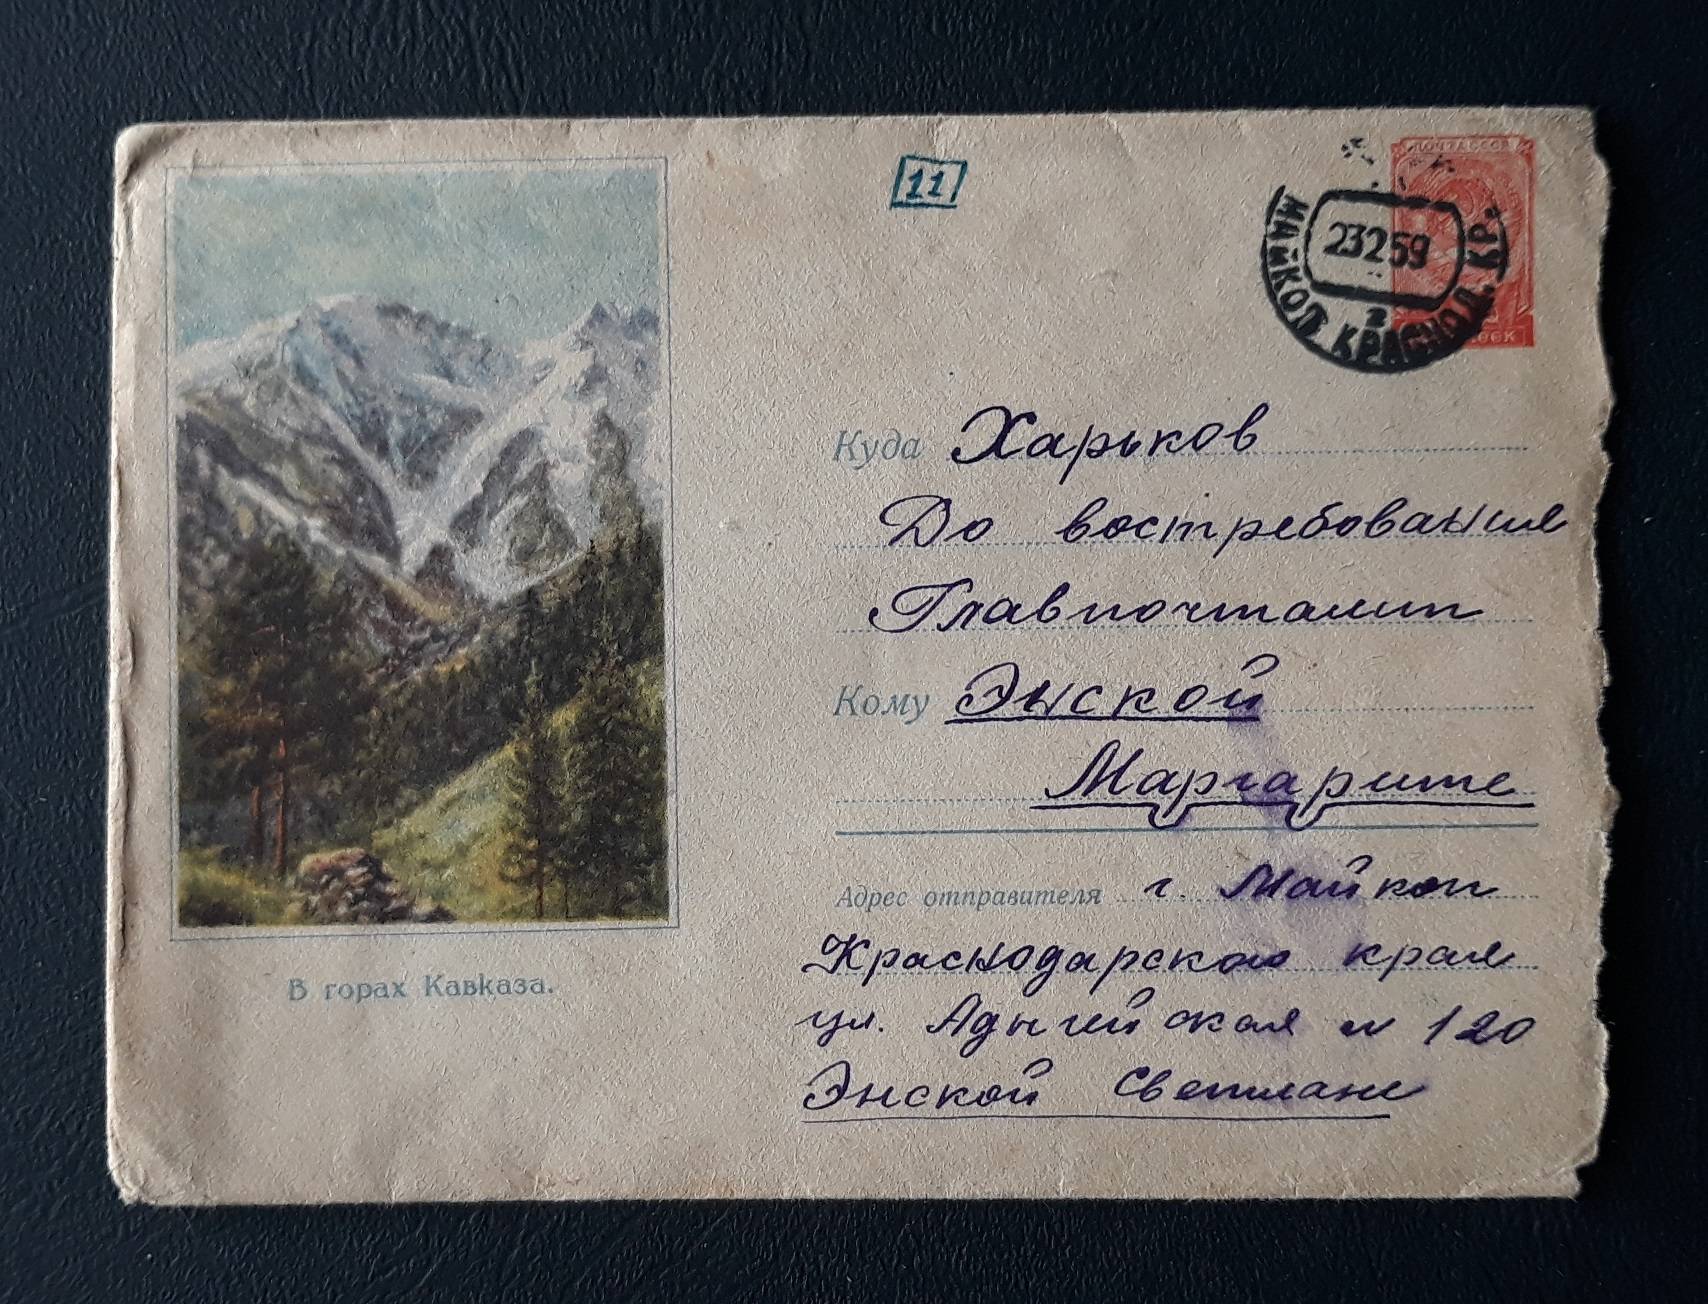 11
ПОЧТА СССР
23259
МАЙКОП КРАСНОД. КР.
2
Куда Харьков
До востребования
Главпочтамт
Кому Энской
Маргарите
Адрес отправителя г. Майкоп
Краснодарского края
ул. Адыгейская № 120
Энской Светлане
В горах Кавказа.